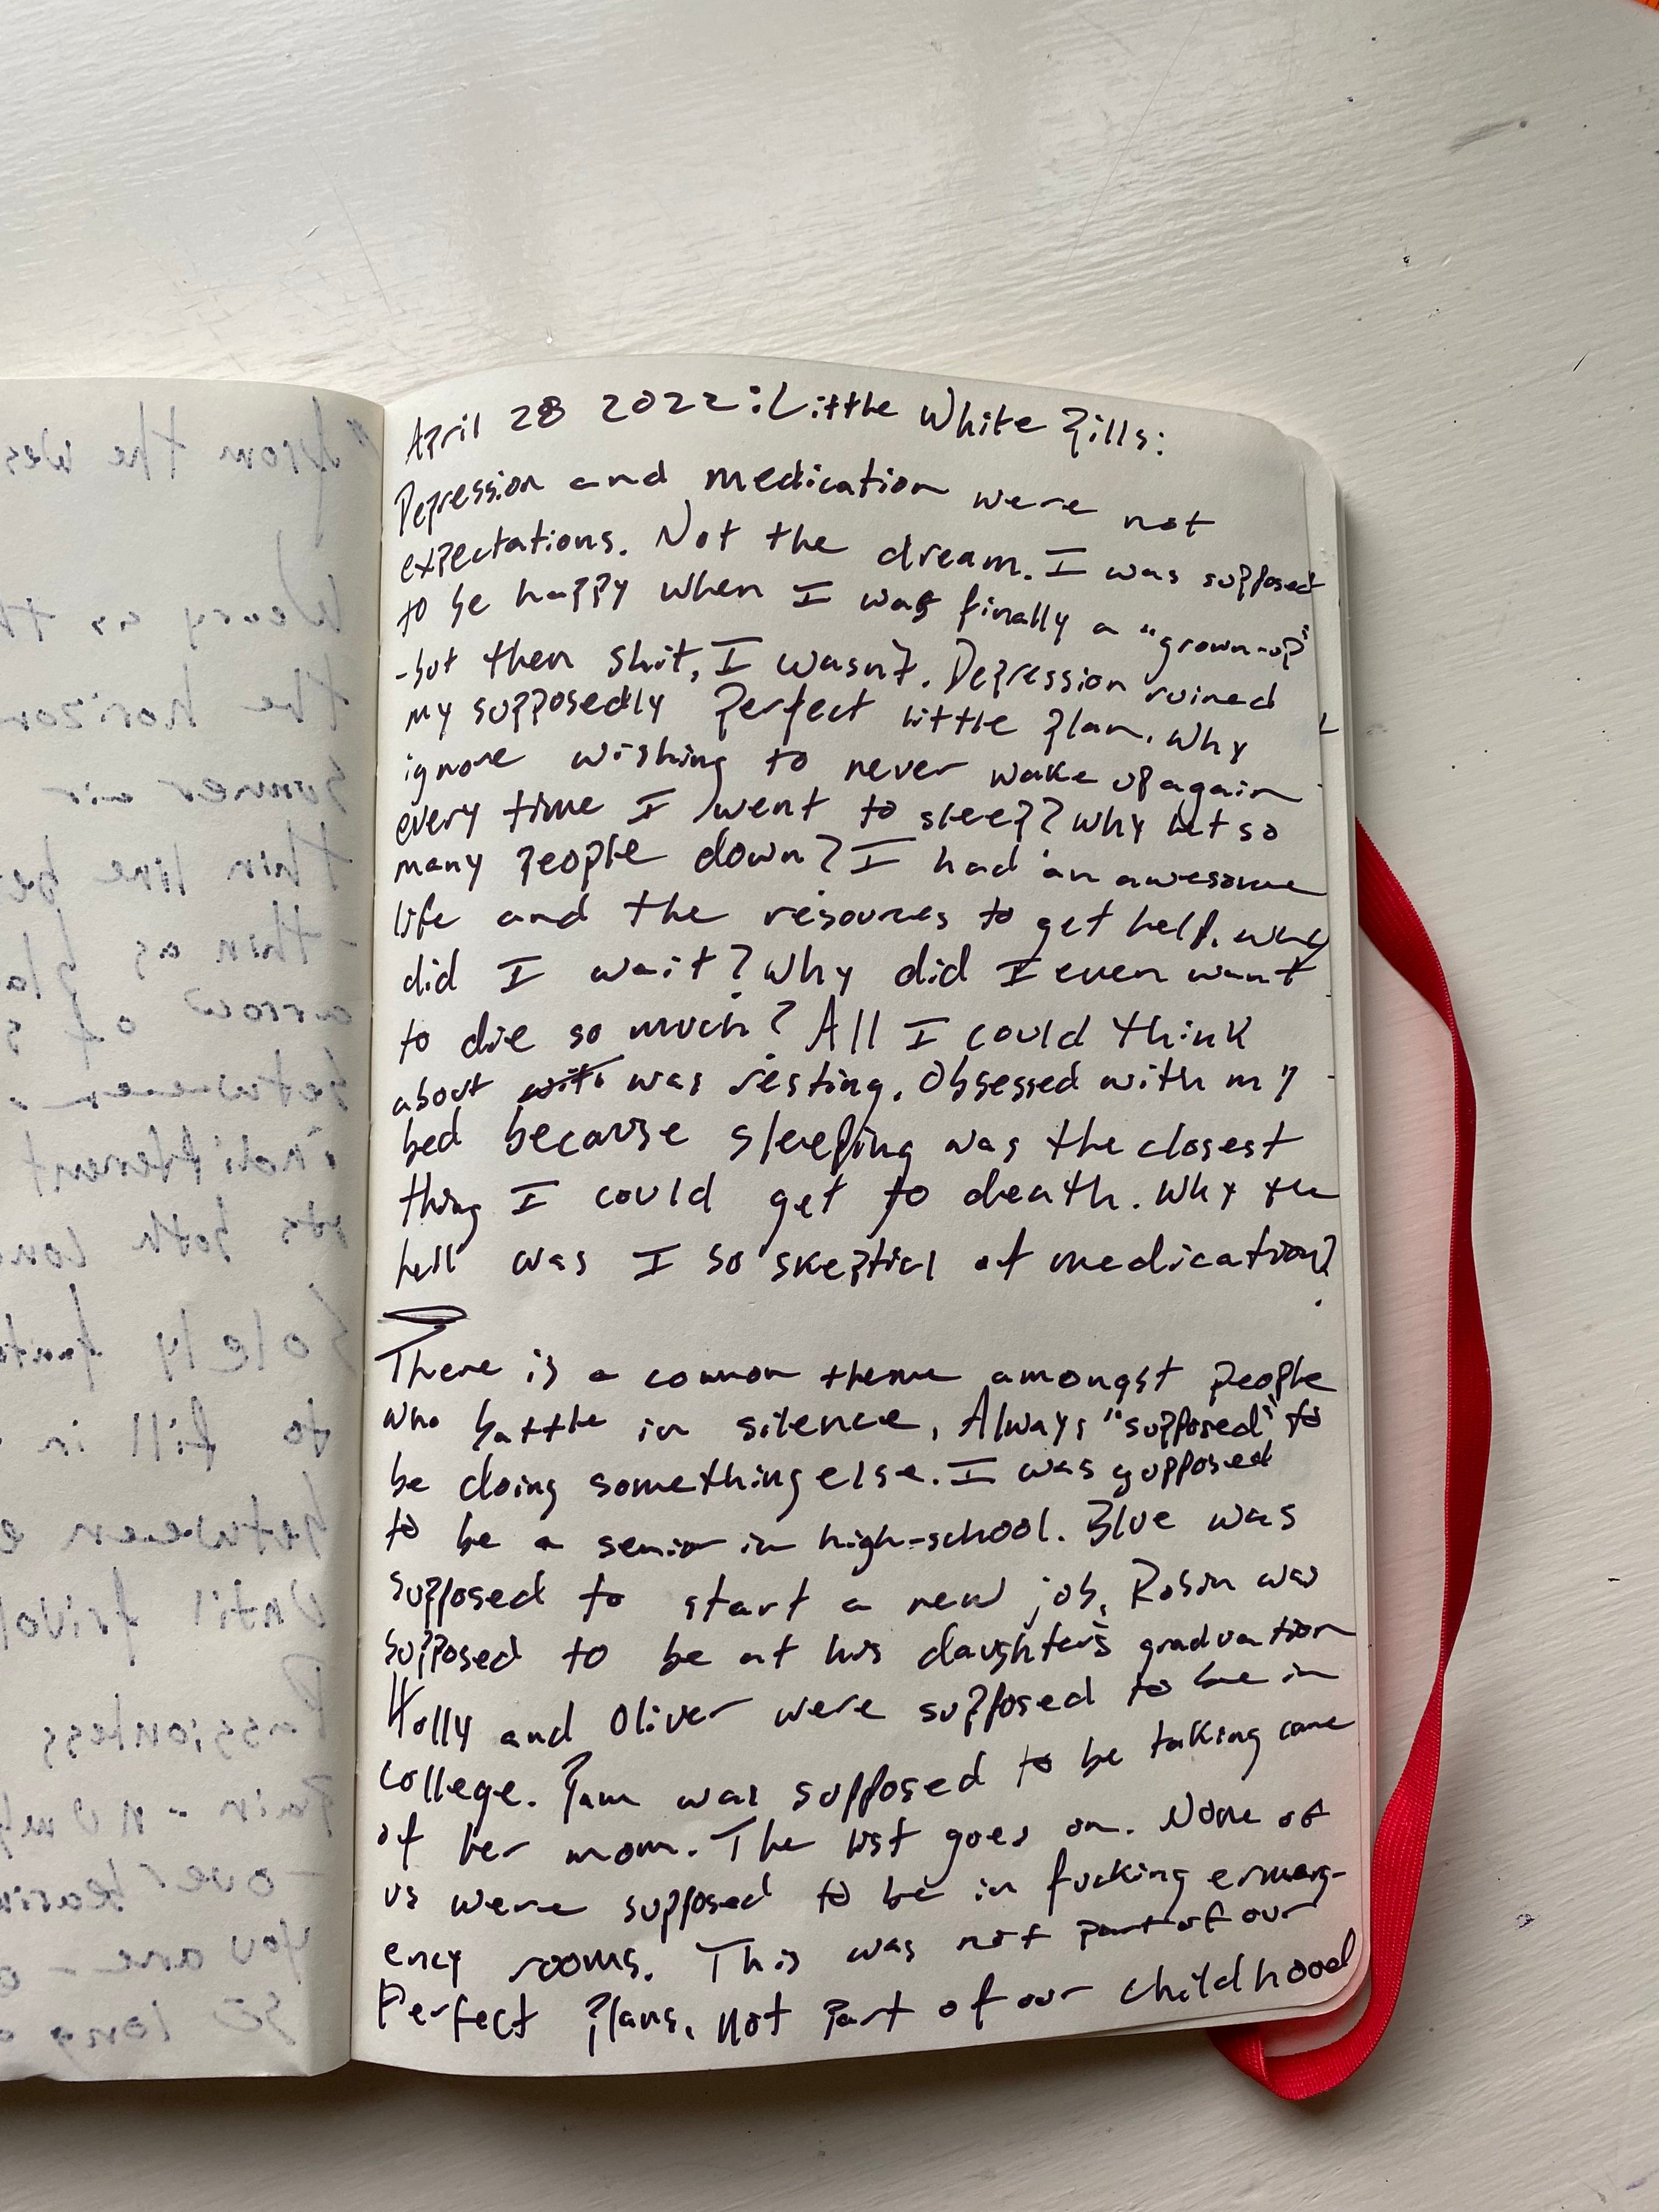 from the
Weary as
the
air
thin line
thin as
arrow of
between
indifferent
its both
Solely
to fill in
between
until
Passionless
Pain -
you are -
so long
April 28 2022: Little White Pills:
Depression and medication were not
expectations. Not the dream. I was supposed
to be happy when I was finally a "grown-up"
-but then shit, I wasn't. Depression ruined
my supposedly perfect little plan. Why
ignore wishing to never wake up again
every time I went to sleep? Why let so
many people down? I had an awesome
life and the resources to get help. why
did I wait? Why did I even want
to die so much? All I could think
about was resting. Obsessed with my
bed because sleeping was the closest
thing I could get to death. Why the
hell was I so skeptical of medication?
There is a common theme amongst people
who battle in silence, Always "supposed" to
be doing something else. I was supposed
to be a senior in high-school. Blue was
supposed to start a new job, Robin was
supposed to be at his daughter's graduation
Holly and Oliver were supposed to be in
college. Pam was supposed to be taking care
of her mom. The list goes on. None of
us were supposed to be in fucking emerg-
ency rooms. This was not part of our
Perfect plans, not part of our childhood